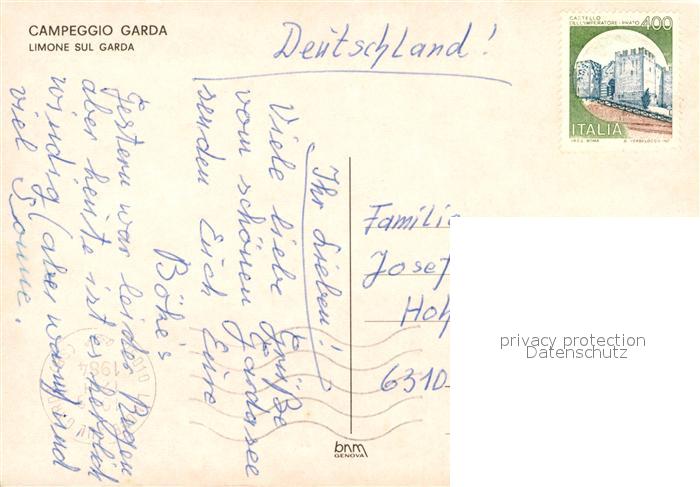 CAMPEGGIO GARDA
LIMONE SUL GARDA
Deutschland!
CASTELLO
DELL'IMPERATORE - PRATO 400
ITALIA
Ihr Lieben!!
Viele liebe Grüße
vom schönen Gardasee
senden Euch Eure
Böhe's
Gestern war leider Regen
aber heute ist es herrlich
windig (aber warm) und
viel Sonne.
Familie
Josef
Hoh
6310
1984
bnm
GENOVA
privacy protection
Datenschutz